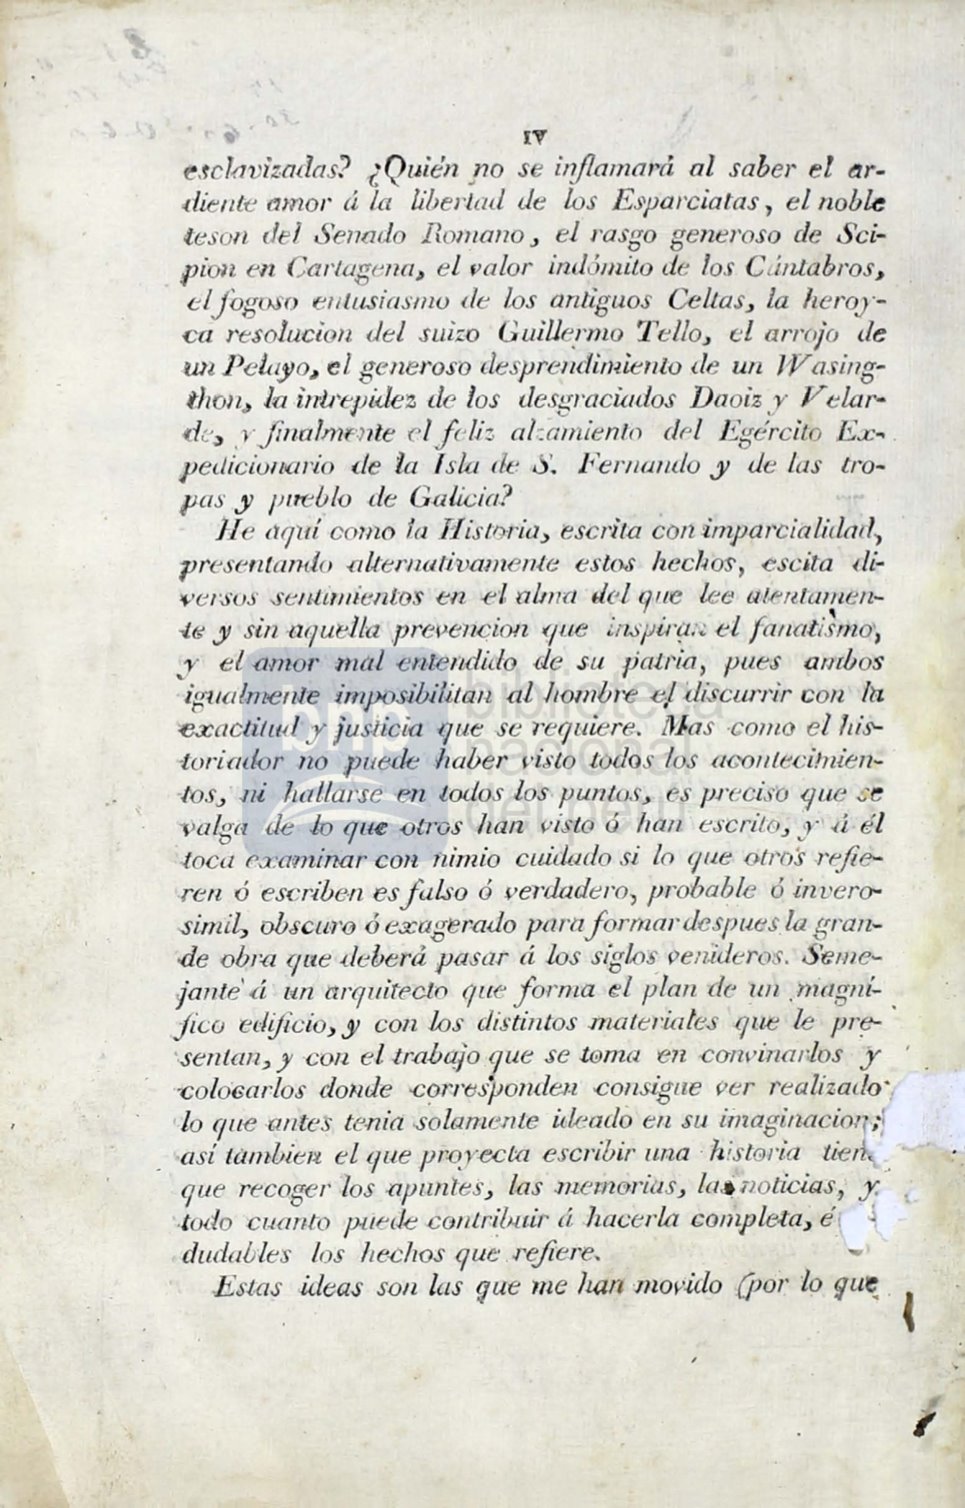 IV
esclavizadas? ¿Quién no se inflamará al saber el ar-
diente amor á la libertad de los Esparciatas, el noble
teson del Senado Romano, el rasgo generoso de Sci-
pion en Cartagena, el valor indómito de los Cántabros,
el fogoso entusiasmo de los antiguos Celtas, la heroy-
ca resolucion del suizo Guillermo Tello, el arrojo de
un Pelayo, el generoso desprendimiento de un Wasing-
thon, la intrepidez de los desgraciados Daoiz y Velar-
de, y finalmente el feliz alzamiento del Egército Ex-
pedicionario de la Isla de S. Fernando y de las tro-
pas y pueblo de Galicia?
He aquí como la Historia, escrita con imparcialidad,
presentando alternativamente estos hechos, escita di-
versos sentimientos en el alma del que lee atentamen-
te y sin aquella prevencion que inspiran el fanatismo,
y el amor mal entendido de su patria, pues ambos
igualmente imposibilitan al hombre el discurrir con la
exactitud y justicia que se requiere. Mas como el his-
toriador no puede haber visto todos los acontecimien-
tos, ni hallarse en todos los puntos, es preciso que se
valga de lo que otros han visto ó han escrito, y á él
toca examinar con nimio cuidado si lo que otros refie-
ren ó escriben es falso ó verdadero, probable ó invero-
simil, obscuro ó exagerado para formar despues la gran-
de obra que deberá pasar á los siglos venideros. Seme-
jante á un arquitecto que forma el plan de un magní-
fico edificio, y con los distintos materiales que le pre-
sentan, y con el trabajo que se toma en convinarlos y
colocarlos donde corresponden consigue ver realizado
lo que antes tenia solamente ideado en su imaginacion;
así tambien el que proyecta escribir una historia tien
que recoger los apuntes, las memorias, las noticias, y
todo cuanto puede contribuir á hacerla completa, é
dudables los hechos que refiere.
Estas ideas son las que me han movido (por lo que